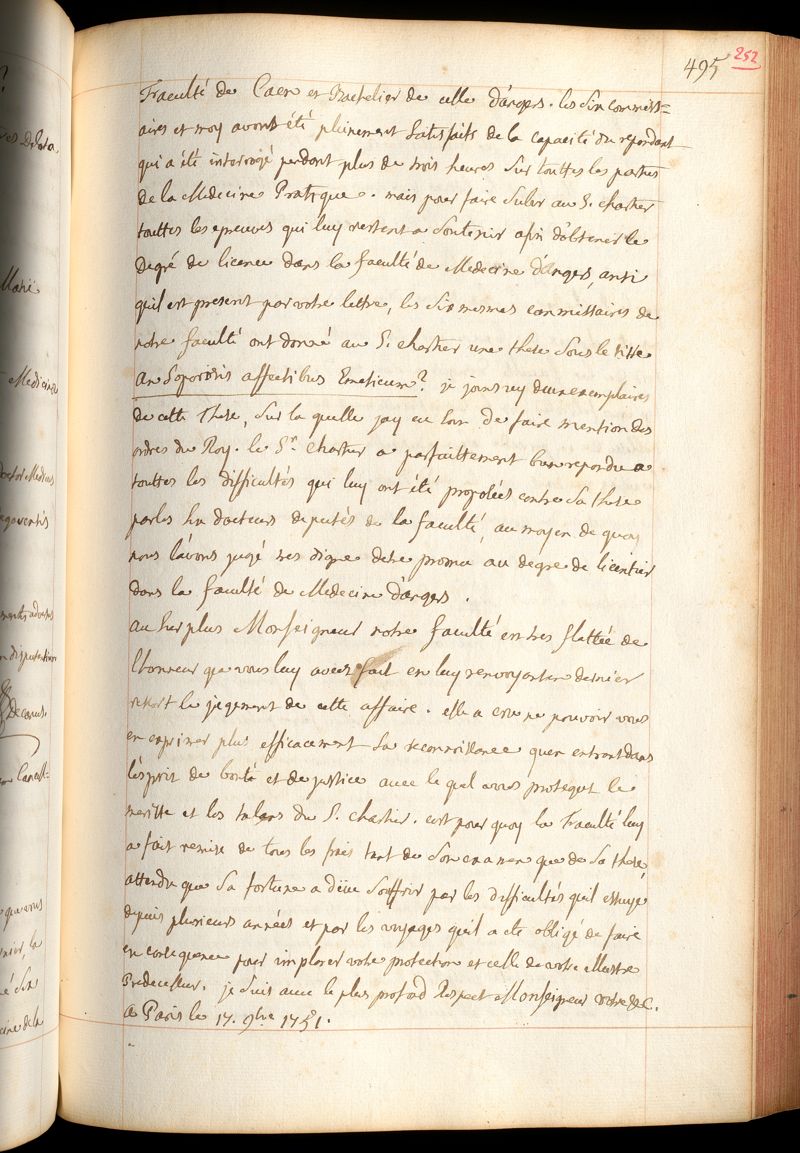 495 252
Faculté de Caen et Bachelier de celle d'angers. les Six commiss=
aires et moy avons été pleinement Satisfaits de la capacité du repondant
qui a été interrogé pendant plus de trois heures Sur touttes les parties
de la Medecine Pratique. mais pour faire Subir au S. chartier
touttes les epreuves qui luy restent a Soutenir afin d'obtenir le
Degré de licence dans la faculté de Medecine d'angers, ainsi
quil est present par votre lettre, les Six mesmes commissaires de
notre faculté ont donné au S. chartier une these Sous le titre
an Soporosis affectibus Emeticum? je joins icy deux exemplaires
de cette These, Sur la quelle jay eu Soin de faire mention des
ordres du Roy. le Sr. chartier a parfaittement bien repondu a
touttes les difficultés qui luy ont été proposées contre Sa these
par les docteurs deputés de la faculté, au moyen de quoy
nous l'avons jugé tres digne detre promu au degre de licentier
dans la faculté de Medecine d'angers.
au Surplus Monseigneur notre faculté est tres flattée de
l'honneur que vous luy avez fait en luy renvoyant en dernier
resort le jugement de cette affaire. elle a cru ne pouvoir vous
en exprimer plus efficacement Sa reconnoissance quen entrant dans
l'esprit de bonté et de justice avec le quel vous protegez le
meritte et les talens du S. chartier. cest pour quoy la Faculté luy
a fait remise de tous les frais tant de Son examen que de Sa these,
attendu que Sa fortune a düe Souffrir par les difficultés quil essuye
depuis plusieurs années et par les voyages quil a été obligé de faire
en consequence pour implorer votre protection et celle de votre illustre
Predecesseur. je Suis avec le plus profond Respect Monseigneur votre &c.
a Paris le 17. 9bre 1751.
es Delata.
Mahié
Medicina
doctor Medicus
Decanus.
que vous